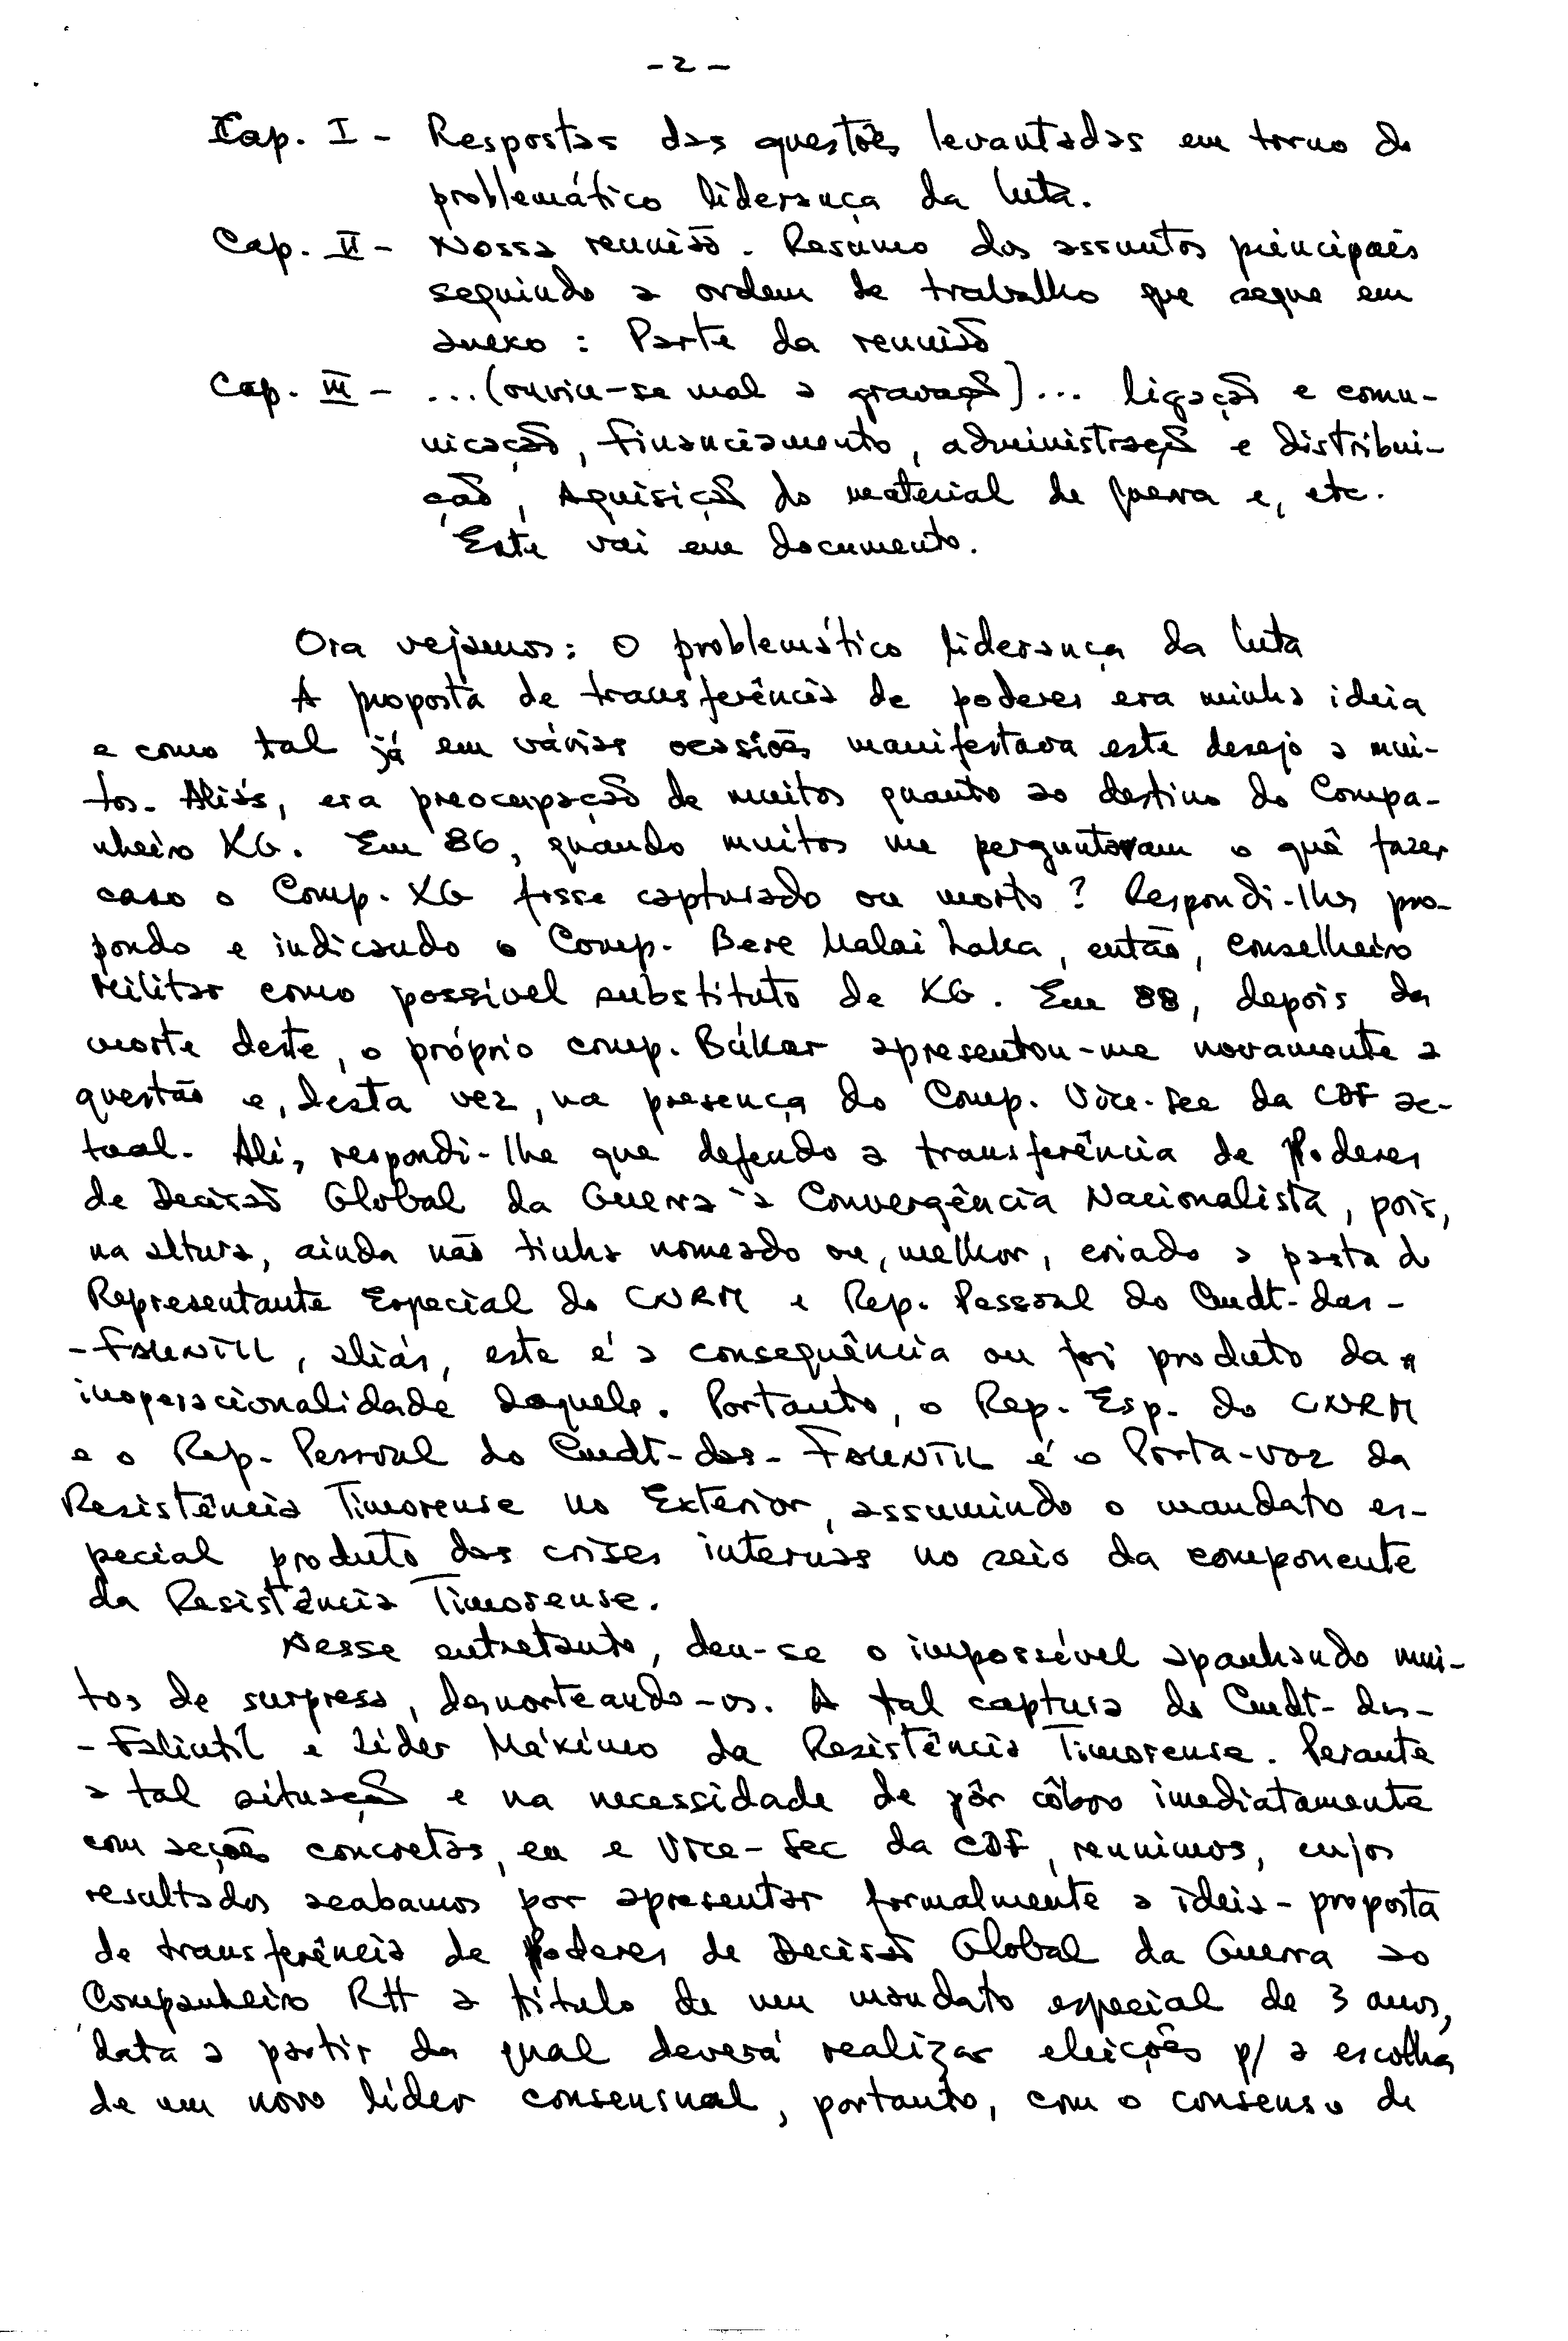 - 2 -
Cap. I - Respostas das questões levantadas em torno do
problemático liderança da luta.
Cap. II - Nossa reunião. Resumo dos assuntos principais
seguindo a ordem de trabalho que segue em
anexo : Parte da reunião
Cap. III - ...(ouviu-se mal a gravação)... ligação e comu-
nicação, financiamento, administração e distribui-
ção, Aquisição do material de guerra e, etc.
Este vai em documento.
Ora vejamos: O problemático liderança da luta
A proposta de transferência de poderes era minha ideia
e como tal já em várias ocasiões manifestava este desejo a mui-
tos. Aliás, era preocupação de muitos quanto ao destino do Compa-
nheiro XG. Em 86, quando muitos me perguntavam o quê fazer
caso o Comp. XG fosse capturado ou morto? Respondi-lhes pro-
pondo e indicando o Comp. Bere Malai Laka, então, conselheiro
Militar como possível substituto de XG. Em 88, depois da
morte deste, o próprio comp. Búkar apresentou-me novamente a
questão e, desta vez, na presença do Comp. Vice-Sec da CDF ac-
tual. Ali, respondi-lhe que defendo a transferência de Poderes
de Decisão Global da Guerra à Convergência Nacionalista, pois,
na altura, ainda não tinha nomeado ou, melhor, criado a pasta do
Representante Especial do CNRM e Rep. Pessoal do Cmdt-das-
-FALINTIL, aliás, este é a consequência ou foi produto da
inoperacionalidade daquele. Portanto, o Rep. Esp. do CNRM
e o Rep. Pessoal do Cmdt-das-FALINTIL é o Porta-voz da
Resistência Timorense no Exterior, assumindo o mandato es-
pecial produto das crises internas no seio da componente
da Resistência Timorense.
Nesse entretanto, deu-se o impossível apanhando mui-
tos de surpresa, desnorteando-os. A tal captura do Cmdt-das-
-Falintil e Líder Máximo da Resistência Timorense. Perante
a tal situação e na necessidade de pôr côbro imediatamente
com acções concretas, eu e Vice-Sec da CDF, reunimos, cujos
resultados acabamos por apresentar formalmente a ideia-proposta
de transferência de Poderes de Decisão Global da Guerra ao
Companheiro RH a título de um mandato especial de 3 anos,
data a partir da qual deverá realizar eleições p/ a escolha
de um novo líder consensual, portanto, com o consenso de